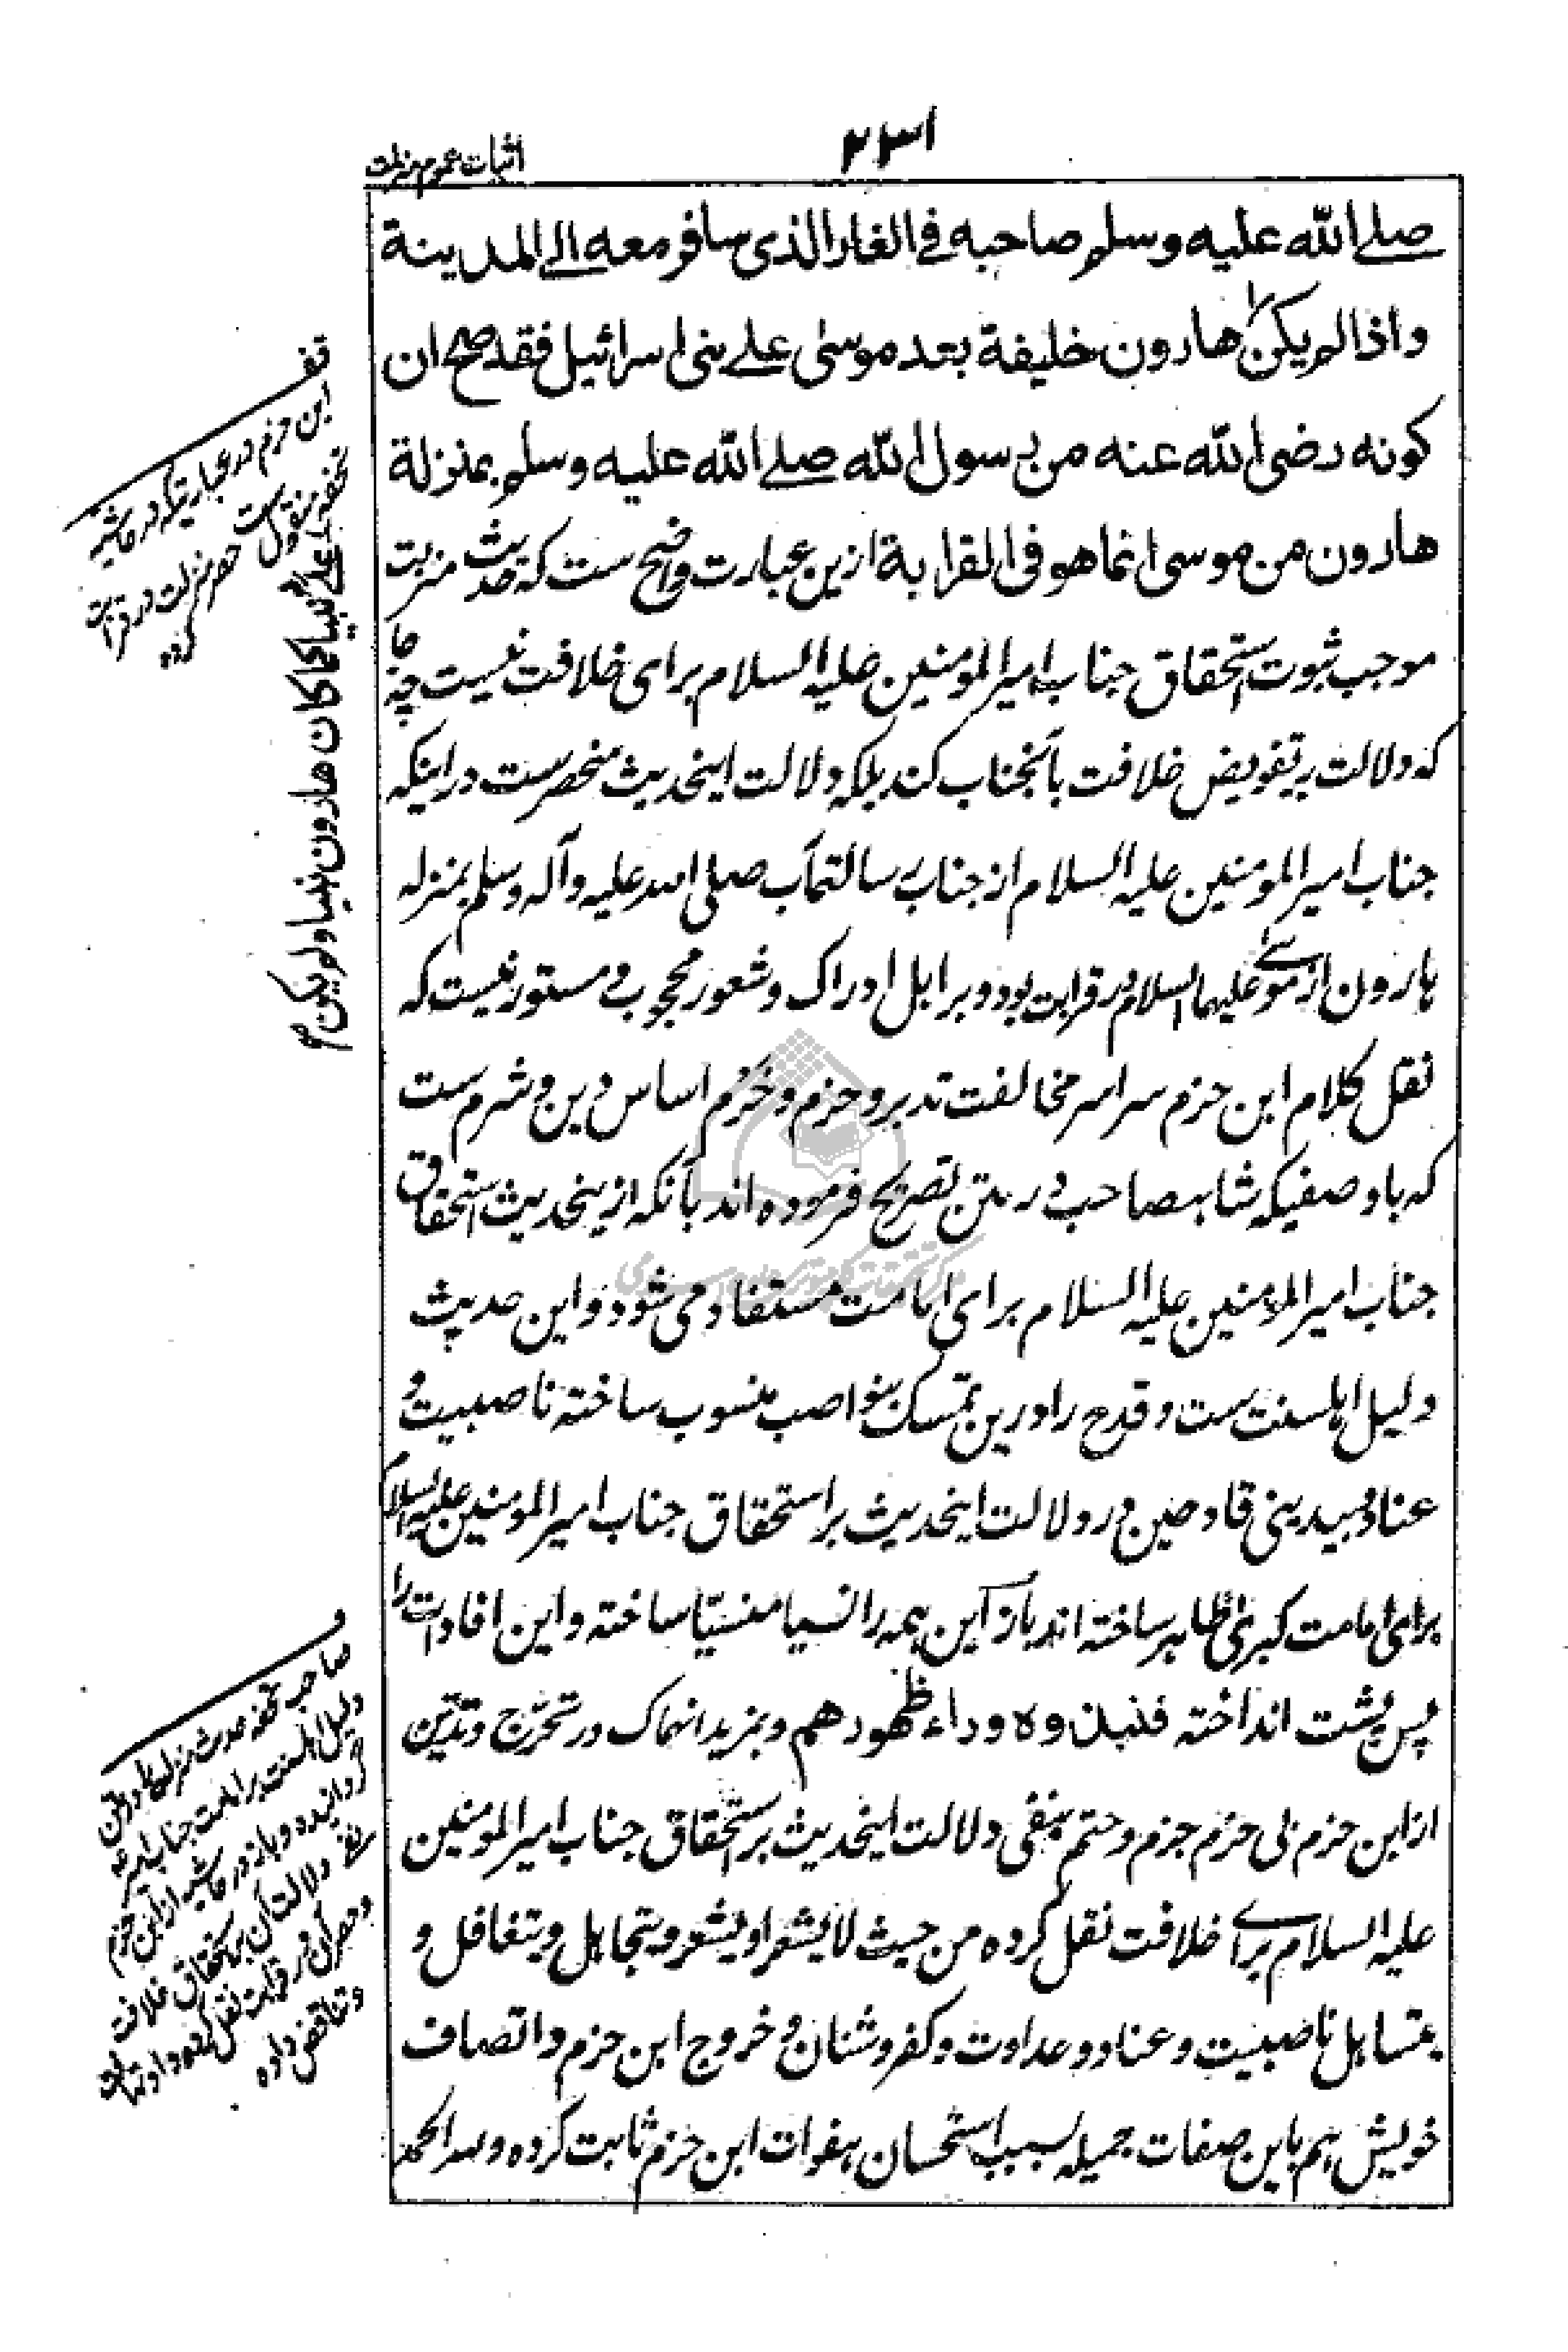 ٢٣١
اثبات عموم منزلت
صلى الله عليه وسلم صاحبه في الغار الذي سافر معه الى المدينة
واذا لم يكن هارون خليفة بعد موسى على بنى اسرائيل فقد صح ان
كونه رضى الله عنه من رسول الله صلى الله عليه وسلم بمنزلة
هارون من موسى انما هو فى القرابة ازين عبارت واضح ست كه حديث منزلت
موجب ثبوت استحقاق جناب امير المومنين عليه السلام براى خلافت نيست چه جا
كه دلالت بر تفويض خلافت بآنجناب كند بلكه دلالت اينحديث منحصرست در اينكه
جناب امير المومنين عليه السلام از جناب رسالتمآب صلى الله عليه وآله وسلم بمنزله
هارون از موسے عليهما السلام در قرابت بود و بر اهل ادراك و شعور محجوب و مستور نيست كه
نقل كلام ابن حزم سراسر مخالفت تدبر و حزم و خرم اساس دين و شرم ست
كه با وصفيكه شاهصاحب در متن تصريح فرموده اند بآنكه ازينحديث استحقاق
جناب امير المومنين عليه السلام براى امامت مستفاد مى شود و اين حديث
دليل اهلسنت ست و قدح را درين تمسك بنواصب منسوب ساخته ناصبيت و
عناد و بيدينى قادحين در دلالت اينحديث بر استحقاق جناب امير المومنين عليه السلام
براى امامت كبرى ظاهر ساخته اند باز اين همه را نسيا منسيّا ساخته و اين افادات را
پس پشت انداخته فنبذوه وراء ظهورهم و بمزيد انهماك در تحرّج و تديّن
از ابن حزم بى حزم جزم و حتم بنفى دلالت اينحديث بر استحقاق جناب امير المومنين
عليه السلام براے خلافت نقل كرده من حيث لا يشعر او يشعر و يتجاهل و يتغافل و
يتساهل ناصبيت و عناد و عداوت و كفر و شنان و خروج ابن حزم و اتصاف
خويش هم باين صفات جميله بسبب استحسان هفوات ابن حزم ثابت كرده ولله الحمد
ابن حزم در عبارتيكه در حاشيه
تحفه منقول ست حصر منزلت در قرابت
نبيا كما كان هارون نبيا ولم يكن
صاحب تحفه حديث منزلت را در متن
دليل اهلسنت بر امامت جناب امير ع
گردانيده و باز در حاشيه از ابن حزم
نفى دلالت آن بر استحقاق خلافت
و حصر آن در قرابت نقل كرده داد تهافت
و تناقض داده